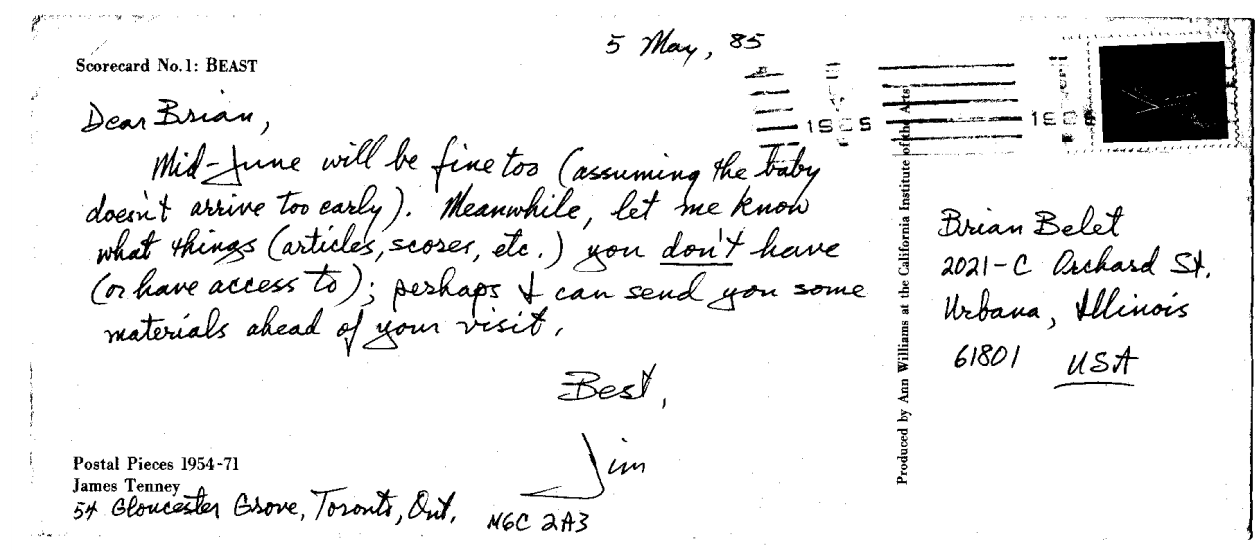 5 May, 85
Scorecard No.1: BEAST
Dear Brian,
Mid-June will be fine too (assuming the baby
doesn't arrive too early). Meanwhile, let me know
what things (articles, scores, etc.) you don't have
(or have access to); perhaps I can send you some
materials ahead of your visit.
Best,
Jim
Postal Pieces 1954-71
James Tenney
54 Gloucester Grove, Toronto, Ont. M6C 2A3
Produced by Ann Williams at the California Institute of the Arts
Brian Belet
2021-C Orchard St.
Urbana, Illinois
61801 USA